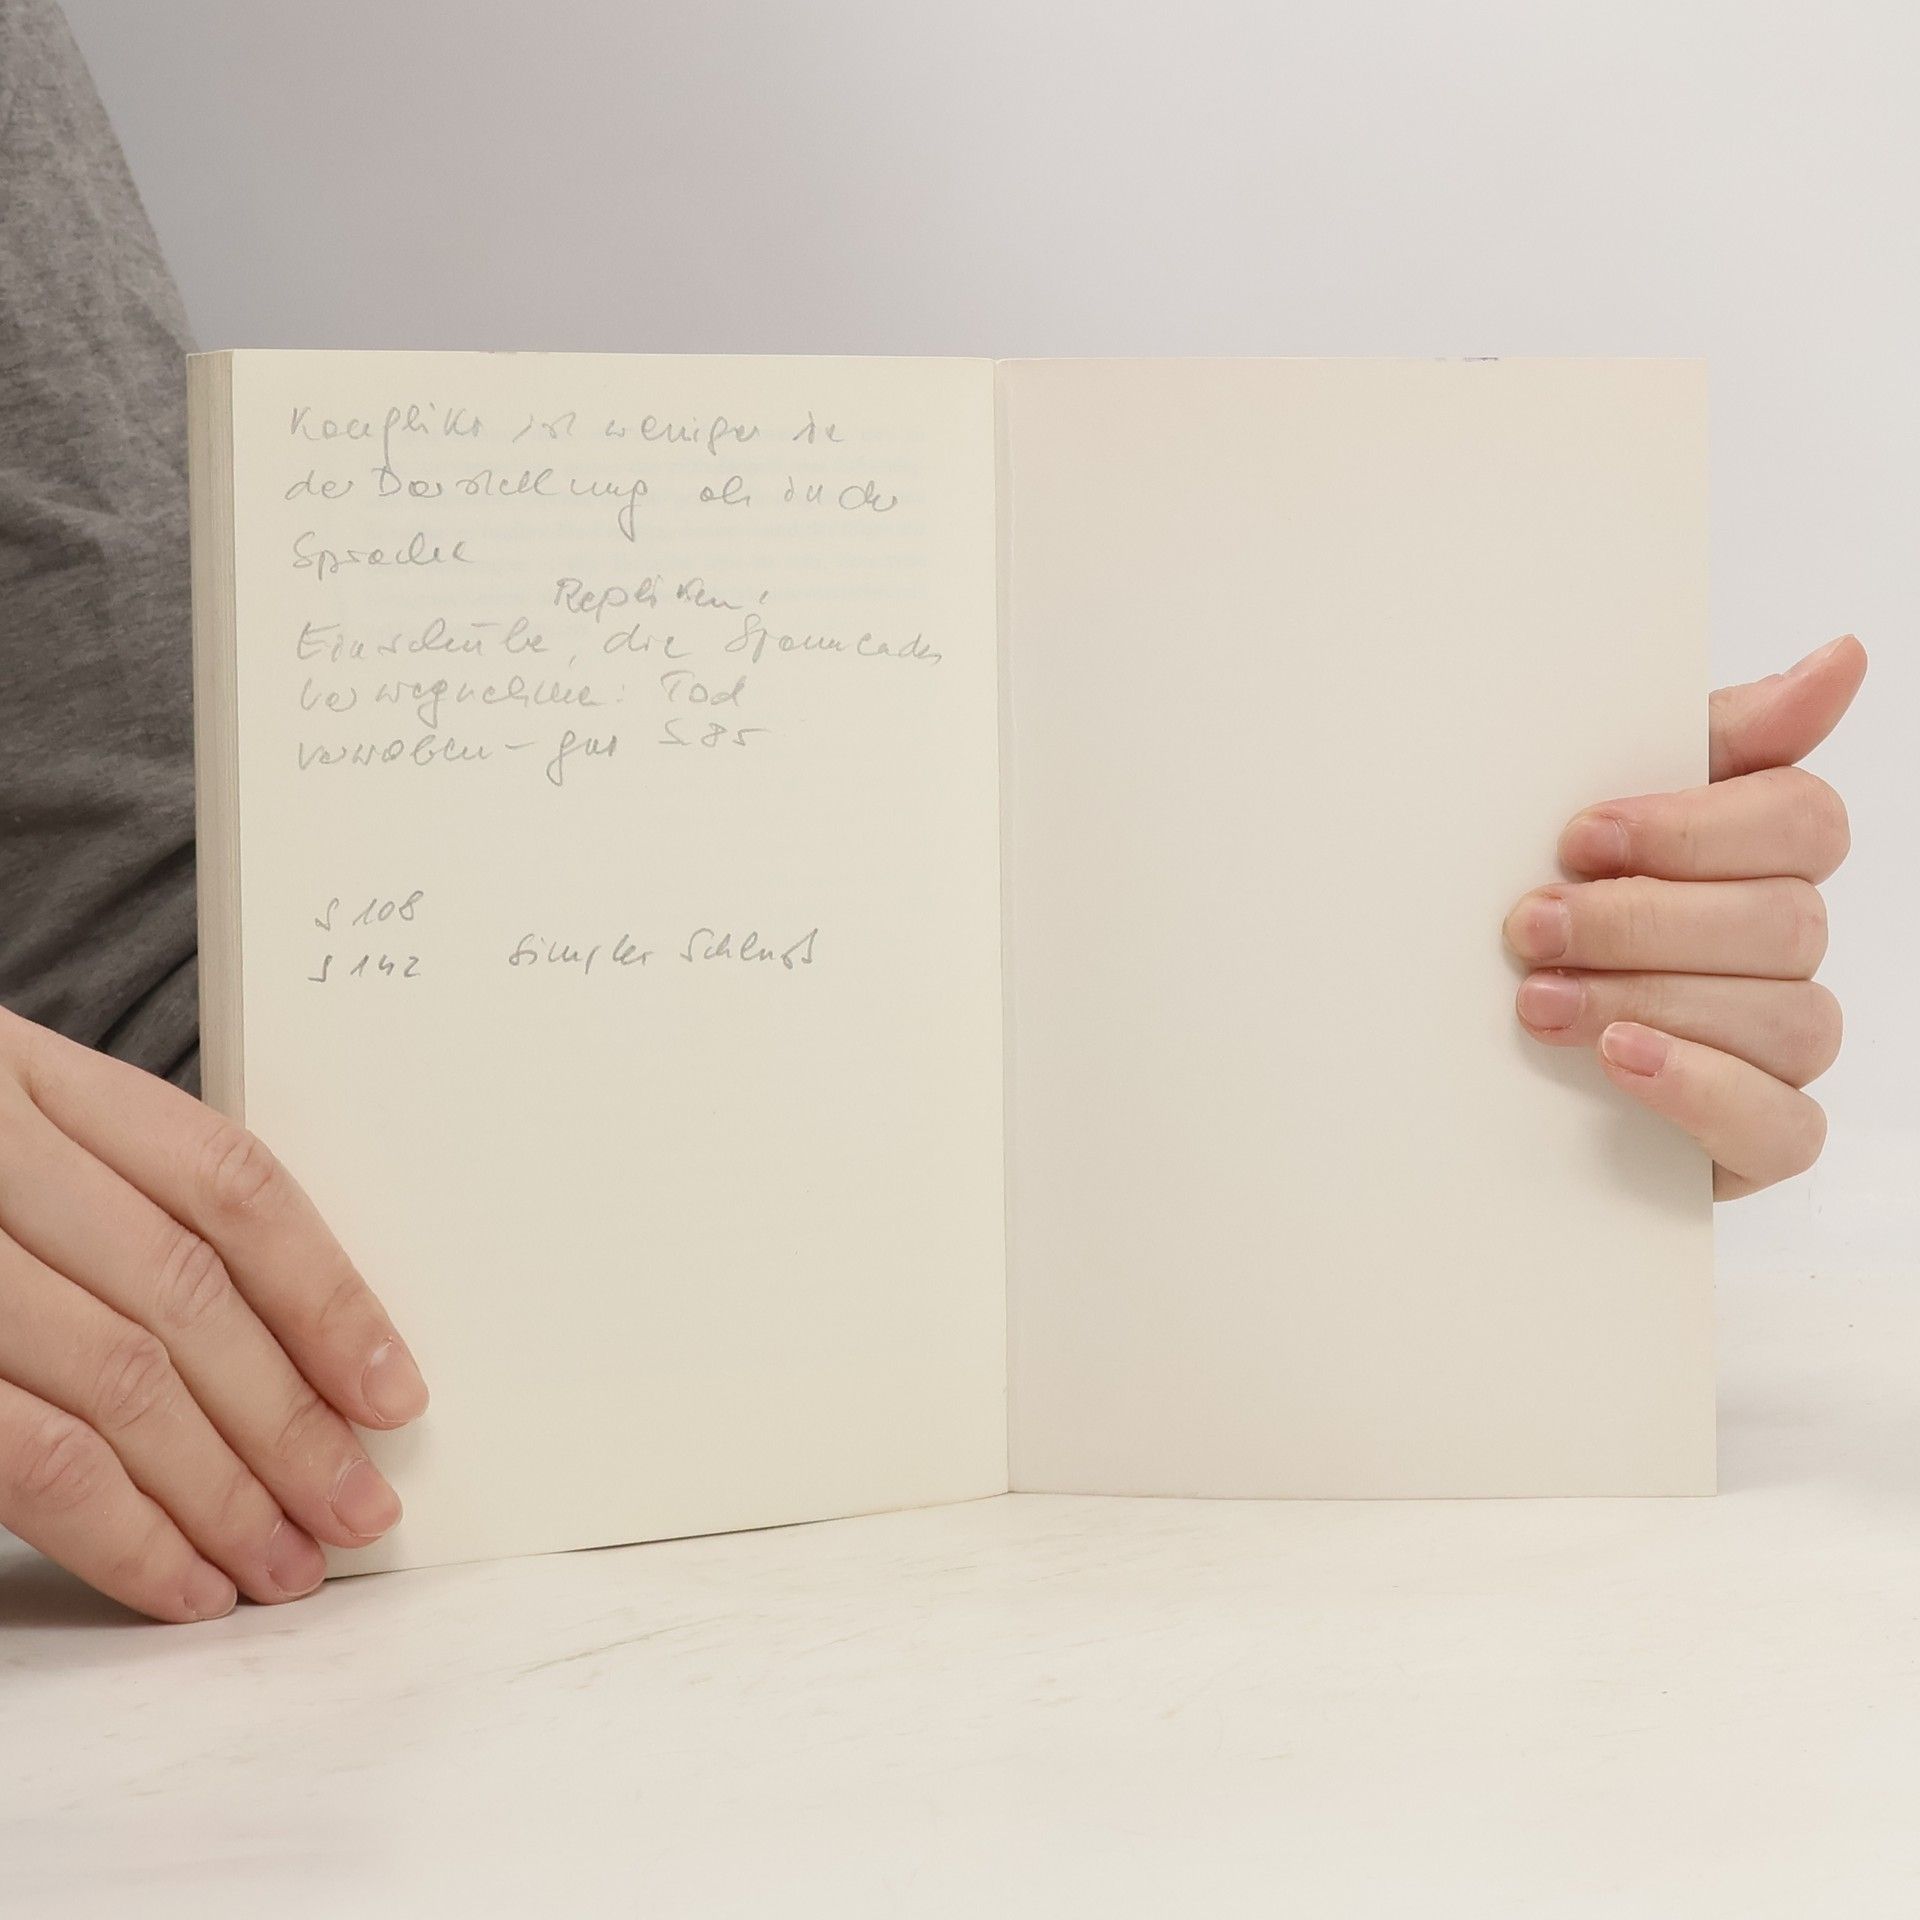 Konflikt ist weniger in
der Darstellung als in der
Sprache
Repliken,
Einschübe, die Spannendes
vorwegnehmen: Tod
gut S 85
S 108
S 142 simpler Schluß